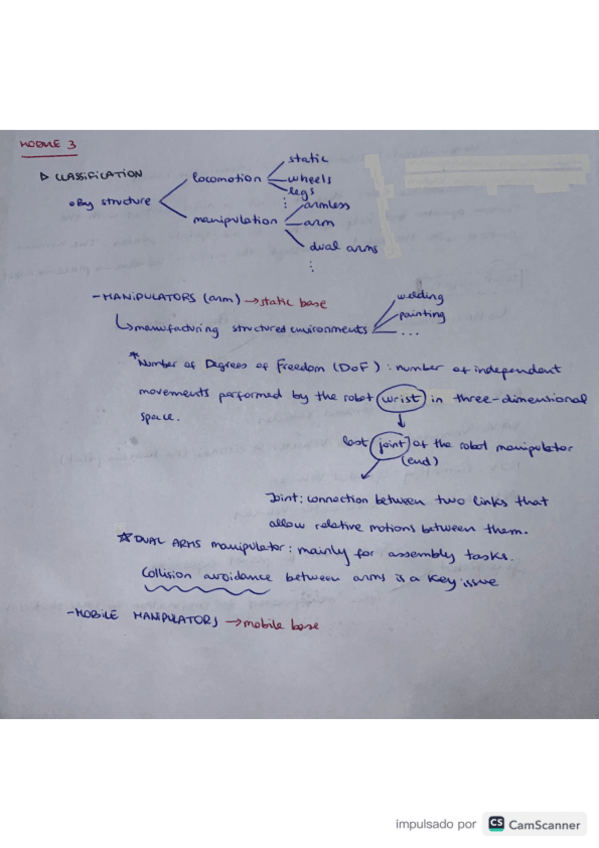 MODULE 3
▷ CLASSIFICATION
• By structure
locomotion
static
wheels
legs
⋮
manipulation
armless
arm
dual arms
⋮
- MANIPULATORS (arm) → static base
↳ manufacturing structured environments
welding
painting
...
* Number of Degrees of Freedom (DoF) : number of independent
movements performed by the robot wrist in three-dimensional
space.
last joint of the robot manipulator
(end)
Joint: connection between two links that
allow relative motions between them.
☆ DUAL ARMS manipulator: mainly for assembly tasks.
Collision avoidance between arms is a key issue
- MOBILE MANIPULATORS → mobile base
impulsado por CS CamScanner